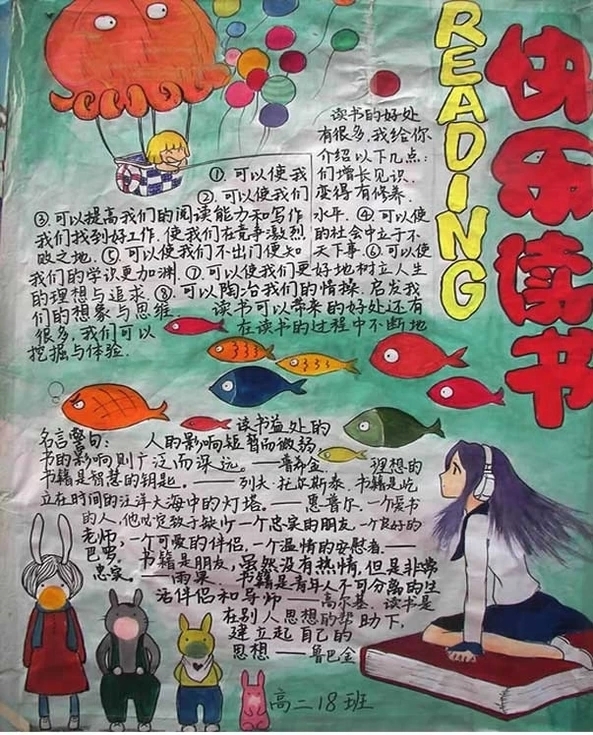 快乐读书
READING
读书的好处
有很多,我给你
介绍以下几点:
①可以使我们增长见识.
②可以使我们变得有修养.
③可以提高我们的阅读能力和写作水平.④可以使
我们找到好工作.使我们在竞争激烈的社会中立于不
败之地.⑤可以使我们不出门便知天下事.⑥可以使
我们的学识更加渊.⑦可以使我们更好地树立人生
的理想与追求.⑧可以陶冶我们的情操.启发我
们的想象与思维. 读书可以带来的好处还有
很多,我们可以 在读书的过程中不断地
挖掘与体验.
读书益处的
名言警句: 人的影响短暂而微弱,
书的影响则广泛而深远。——普希金. 理想的
书籍是智慧的钥匙。——列夫·托尔斯泰.书籍是屹
立在时间的汪洋大海中的灯塔。——惠普尔.一个爱书
的人,他必定致于缺少一个忠实的朋友,一个良好的
老师,一个可爱的伴侣,一个温情的安慰者.——
巴罗. 书籍是朋友,虽然没有热情,但是非常
忠实. ——雨果. 书籍是青年人不可分离的生
活伴侣和导师——高尔基.读书是
在别人思想的帮助下,
建立起自己的
思想——鲁巴金
高二18班